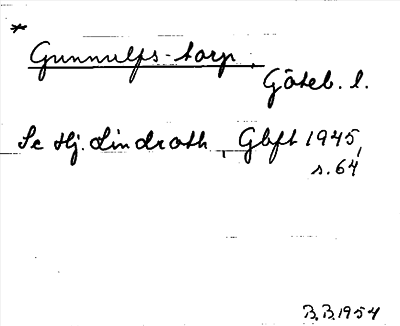 *
Gunnulfs-torp.
Göteb. l.
Se Hj. Lindroth, Gbft 1945,
s. 64
B.B. 1954